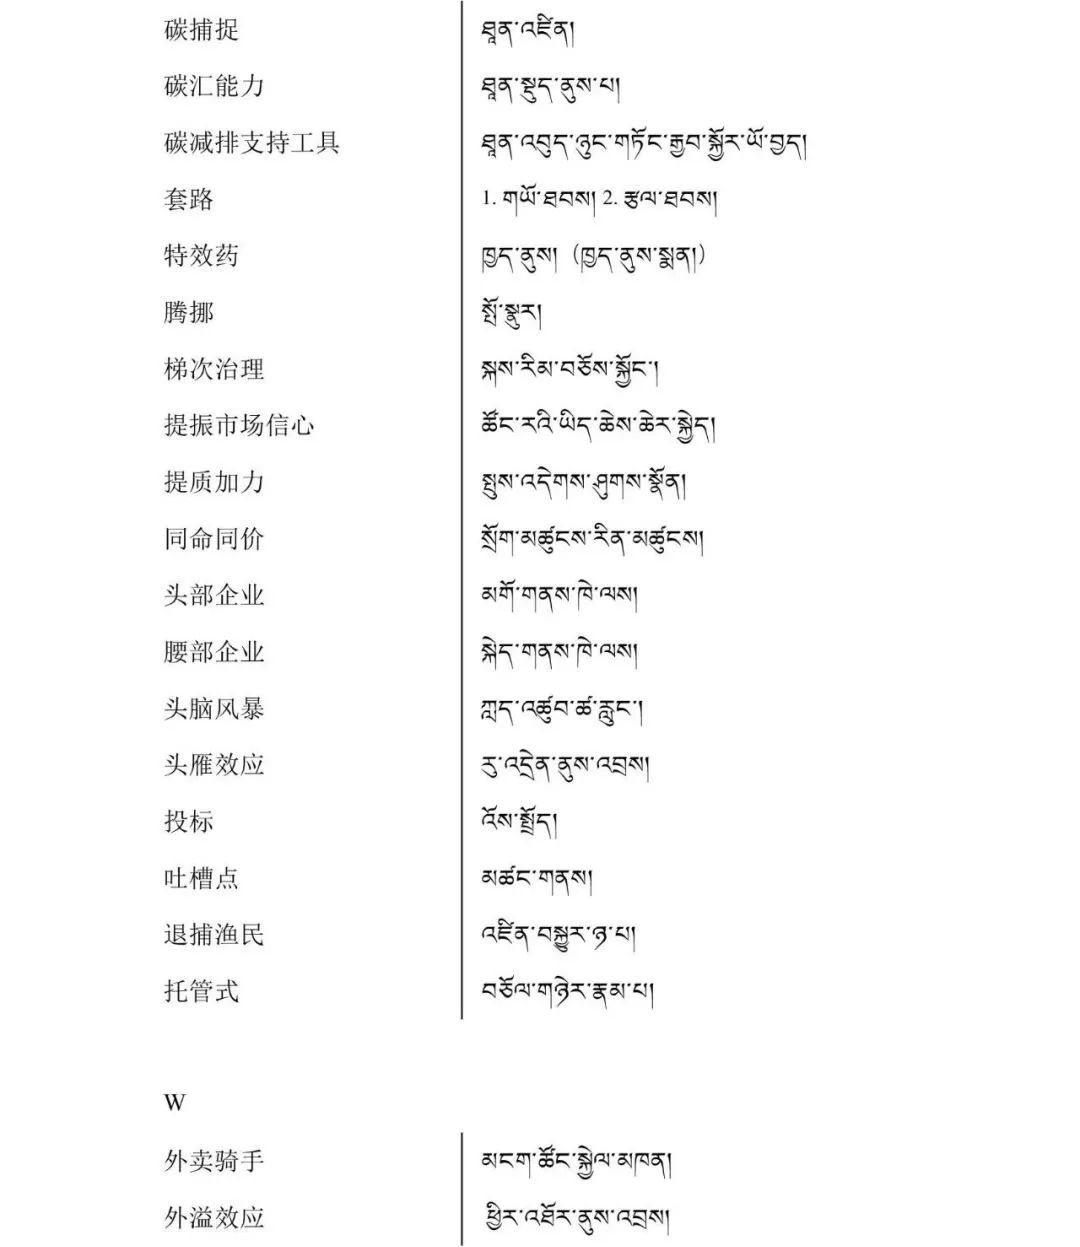 碳捕捉 ཐཱན་འཛིན།
碳汇能力 ཐཱན་སྡུད་ནུས་པ།
碳减排支持工具 ཐཱན་འབུད་ཉུང་གཏོང་རྒྱབ་སྐྱོར་ཡོ་བྱད།
套路 1. གཡོ་ཐབས། 2. རྩལ་ཐབས།
特效药 ཁྱད་ནུས། (ཁྱད་ནུས་སྨན།)
腾挪 སྤོ་སྣུར།
梯次治理 སྐས་རིམ་བཅོས་སྐྱོང་།
提振市场信心 ཚོང་རའི་ཡིད་ཆེས་ཆེར་སྐྱེད།
提质加力 སྤུས་འདེགས་ཤུགས་སྣོན།
同命同价 སྲོག་མཚུངས་རིན་མཚུངས།
头部企业 མགོ་གནས་ཁེ་ལས།
腰部企业 སྐེད་གནས་ཁེ་ལས།
头脑风暴 ཀླད་འཚུབ་ཚ་རླུང་།
头雁效应 རུ་འདྲེན་ནུས་འབྲས།
投标 འོས་སྤྲོད།
吐槽点 མཚང་གནས།
退捕渔民 འཛིན་བསྐྱུར་ཉ་པ།
托管式 བཅོལ་གཉེར་རྣམ་པ།
W
外卖骑手 མངག་ཚོང་སྐྱེལ་མཁན།
外溢效应 ཕྱིར་འཐོར་ནུས་འབྲས།